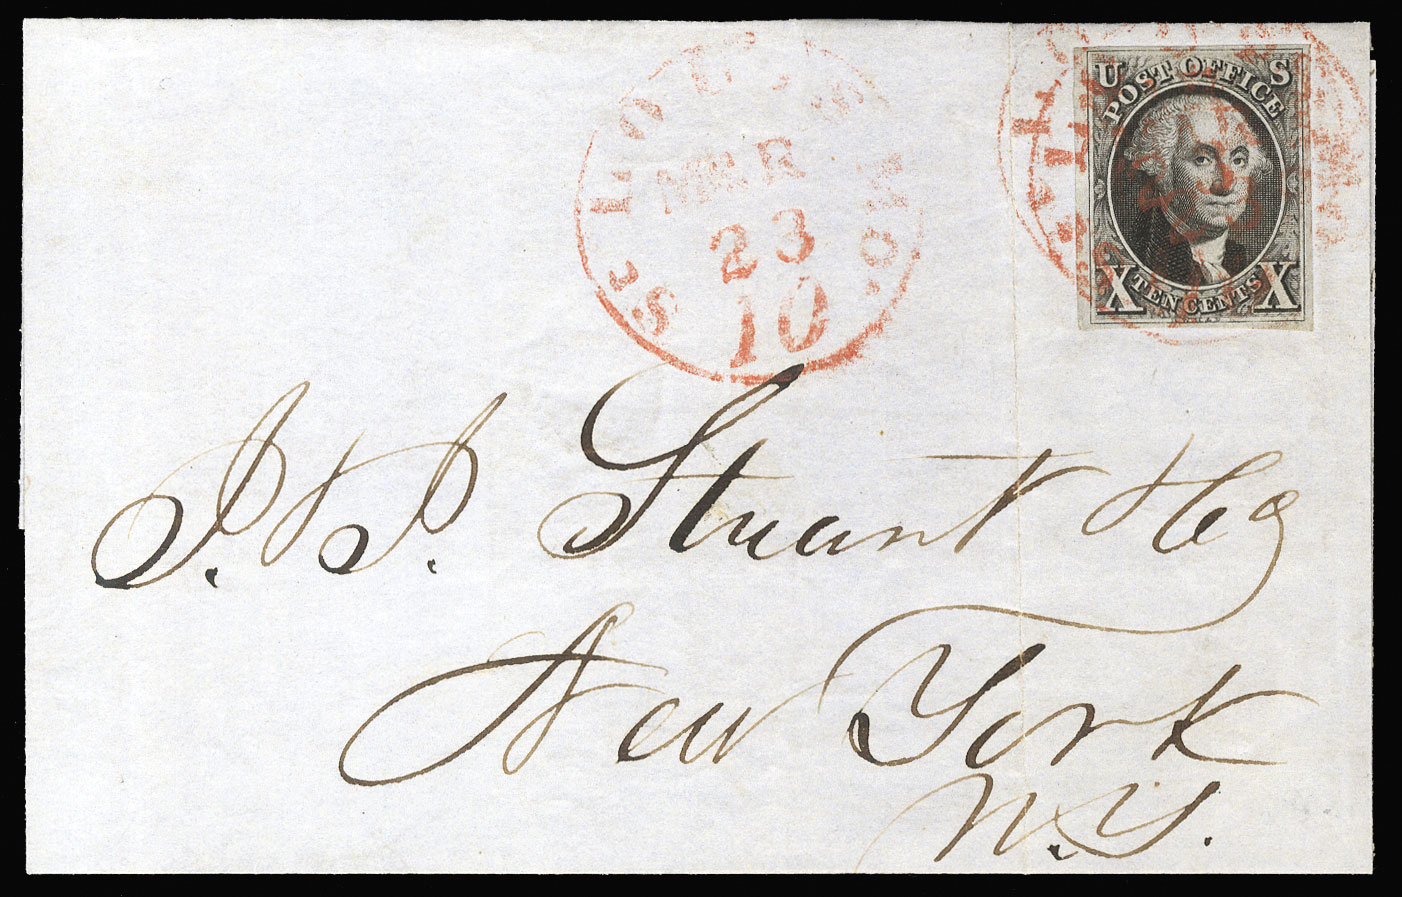 ST LOUIS MO.
MAR
23
10
U S
POST OFFICE
X TEN CENTS X
J. J. Stuart Esq
New York
N.Y.